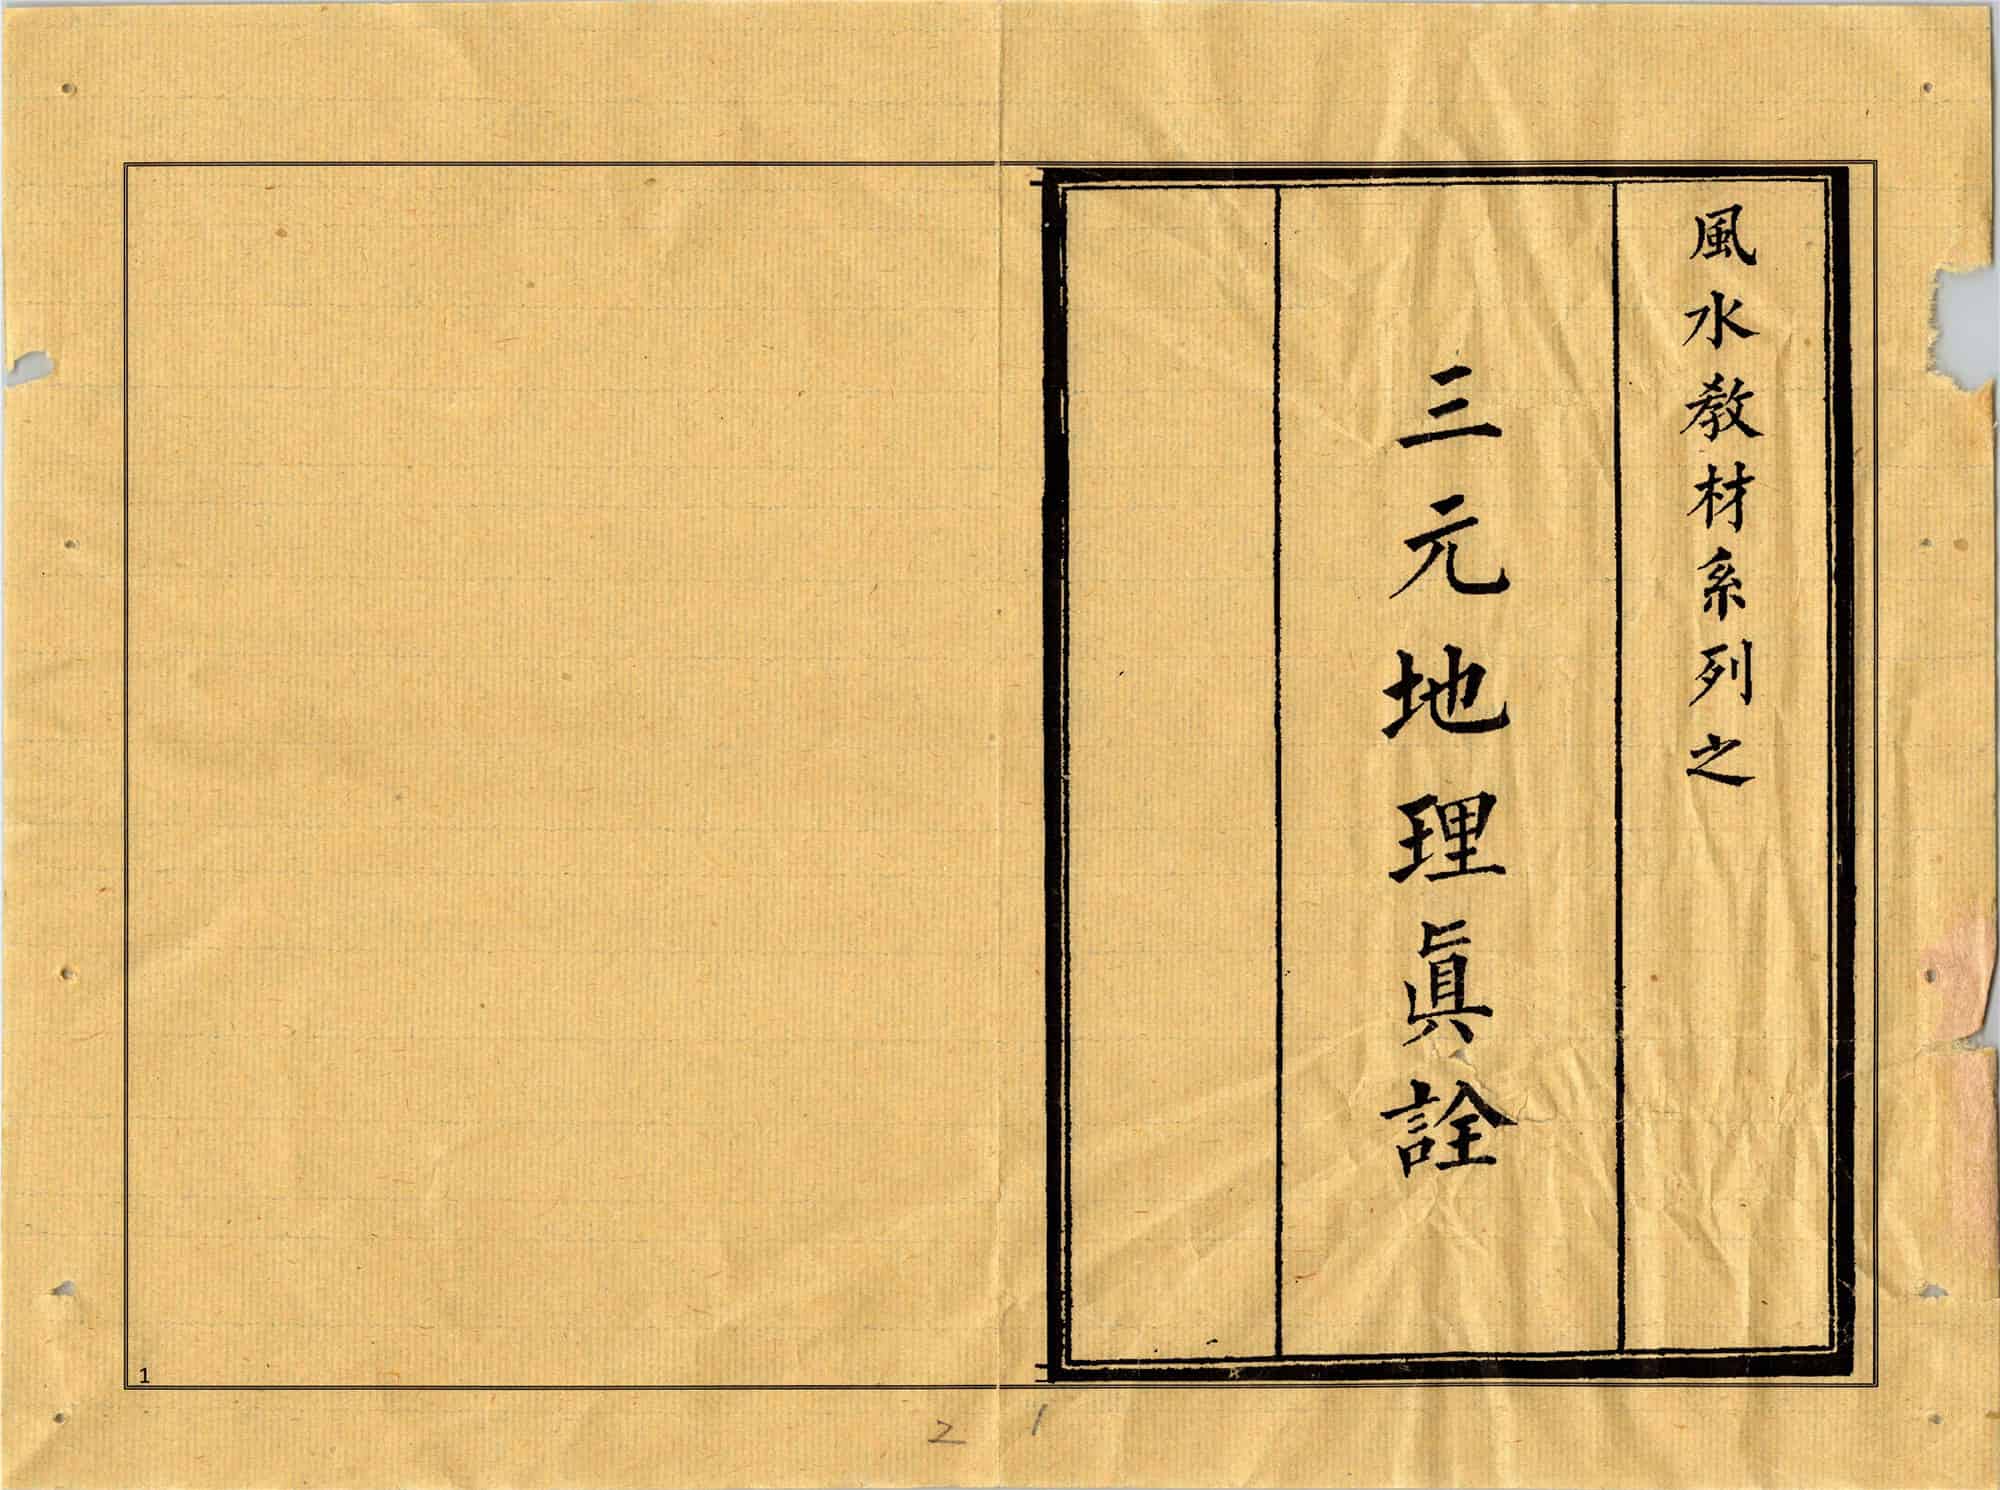 風水教材系列之
三元地理眞詮
1
1
2